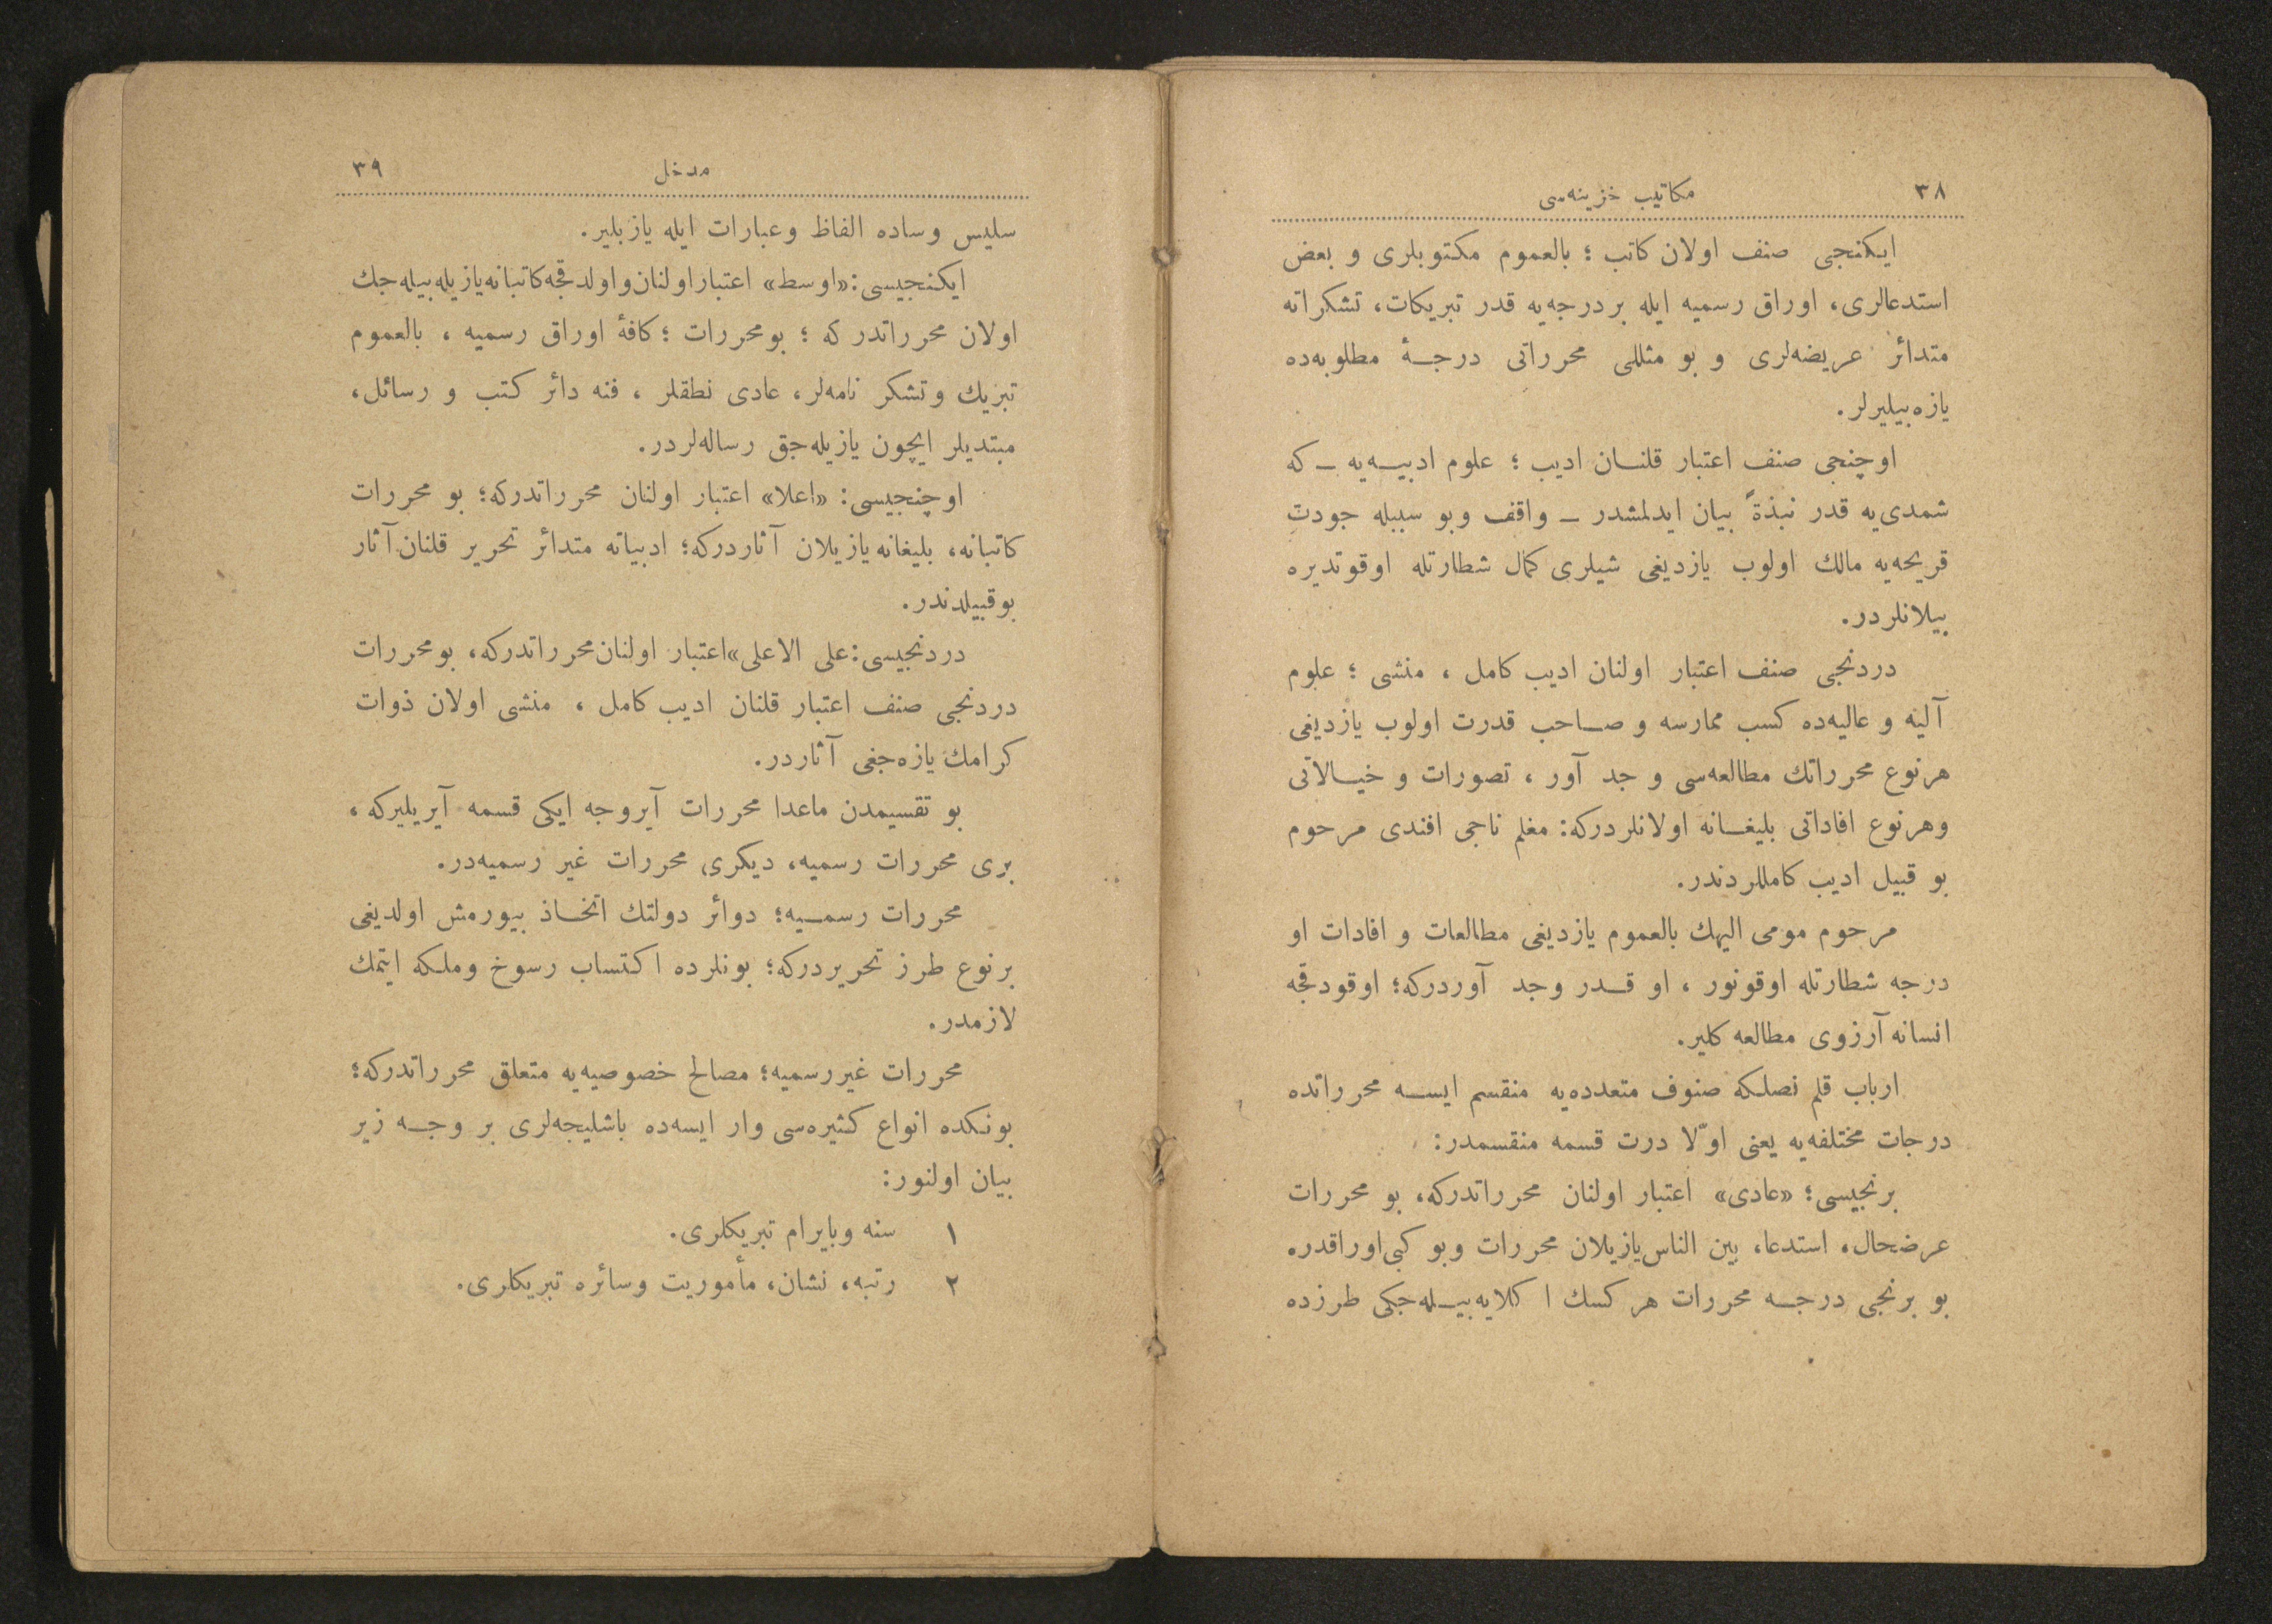 ٣٨ مكاتيب خزينه‌سى
ايكنجى صنف اولان كاتب ؛ بالعموم مكتوبلرى و بعض
استدعالرى، اوراق رسميه ايله بر درجه‌يه قدر تبريكات، تشكراته
متدائر عريضه‌لرى و بو مثللى محرراتى درجۀ مطلوبه‌ده
يازه‌بيليرلر.
اوچنجى صنف اعتبار قلنان اديب ؛ علوم ادبيه‌يه ــ كه
شمدى‌يه قدر نبذةً بيان ايدلمشدر ــ واقف وبو سببله جودت
قريحه‌يه مالك اولوب يازديغى شيلرى كمال شطارتله اوقوتديره
بيلانلردر.
دردنجى صنف اعتبار اولنان اديب كامل ، منشى ؛ علوم
آليه و عاليه‌ده كسب ممارسه و صاحب قدرت اولوب يازديغى
هرنوع محرراتك مطالعه‌سى و جد آور ، تصورات و خيالاتى
وهرنوع افاداتى بليغانه اولانلردركه: مغلم ناجى افندى مرحوم
بو قبيل اديب كامللردندر.
مرحوم مومى اليهك بالعموم يازديغى مطالعات و افادات او
درجه شطارتله اوقونور ، او قدر وجد آوردركه؛ اوقودقجه
انسانه آرزوى مطالعه كلير.
ارباب قلم نصلكه صنوف متعدده‌يه منقسم ايسه محرراتده
درجات مختلفه‌يه يعنى اوّلا درت قسمه منقسمدر:
برنجيسى؛ «عادى» اعتبار اولنان محرراتدركه، بو محررات
عرضحال، استدعا، بين الناس يازيلان محررات وبو كبى اوراقدر.
بو برنجى درجه محررات هر كسك ا كلايه‌بيله‌جكى طرزده
مدخل ٣٩
سليس وساده الفاظ وعبارات ايله يازيلير.
ايكنجيسى: «اوسط» اعتبار اولنان و اولدقجه كاتبانه يازيله بيله‌جك
اولان محرراتدر كه ؛ بو محررات ؛ كافۀ اوراق رسميه ، بالعموم
تبريك وتشكر نامه‌لر، عادى نطقلر ، فنه دائر كتب و رسائل،
مبتديلر ايچون يازيله‌جق رساله‌لردر.
اوچنجيسى: «اعلا» اعتبار اولنان محرراتدركه؛ بو محررات
كاتبانه، بليغانه يازيلان آثاردركه؛ ادبياته متدائر تحرير قلنان آثار
بوقبيلدندر.
دردنجيسى: على الاعلى» اعتبار اولنان محرراتدركه، بو محررات
دردنجى صنف اعتبار قلنان اديب كامل ، منشى اولان ذوات
كرامك يازه‌جغى آثاردر.
بو تقسيمدن ماعدا محررات آيروجه ايكى قسمه آيريليركه ،
برى محررات رسميه، ديكرى محررات غير رسميه‌در.
محررات رسميه؛ دوائر دولتك اتخاذ بيورمش اولديغى
برنوع طرز تحريردركه؛ بونلرده ا كتساب رسوخ وملكه ايتمك
لازمدر.
محررات غيررسميه؛ مصالح خصوصيه‌يه متعلق محرراتدركه؛
بونكده انواع كثيره‌سى وار ايسه‌ده باشليجه‌لرى بر وجه زير
بيان اولنور:
١ سنه وبايرام تبريكلرى.
٢ رتبه، نشان، مأموريت وسائره تبريكلرى.